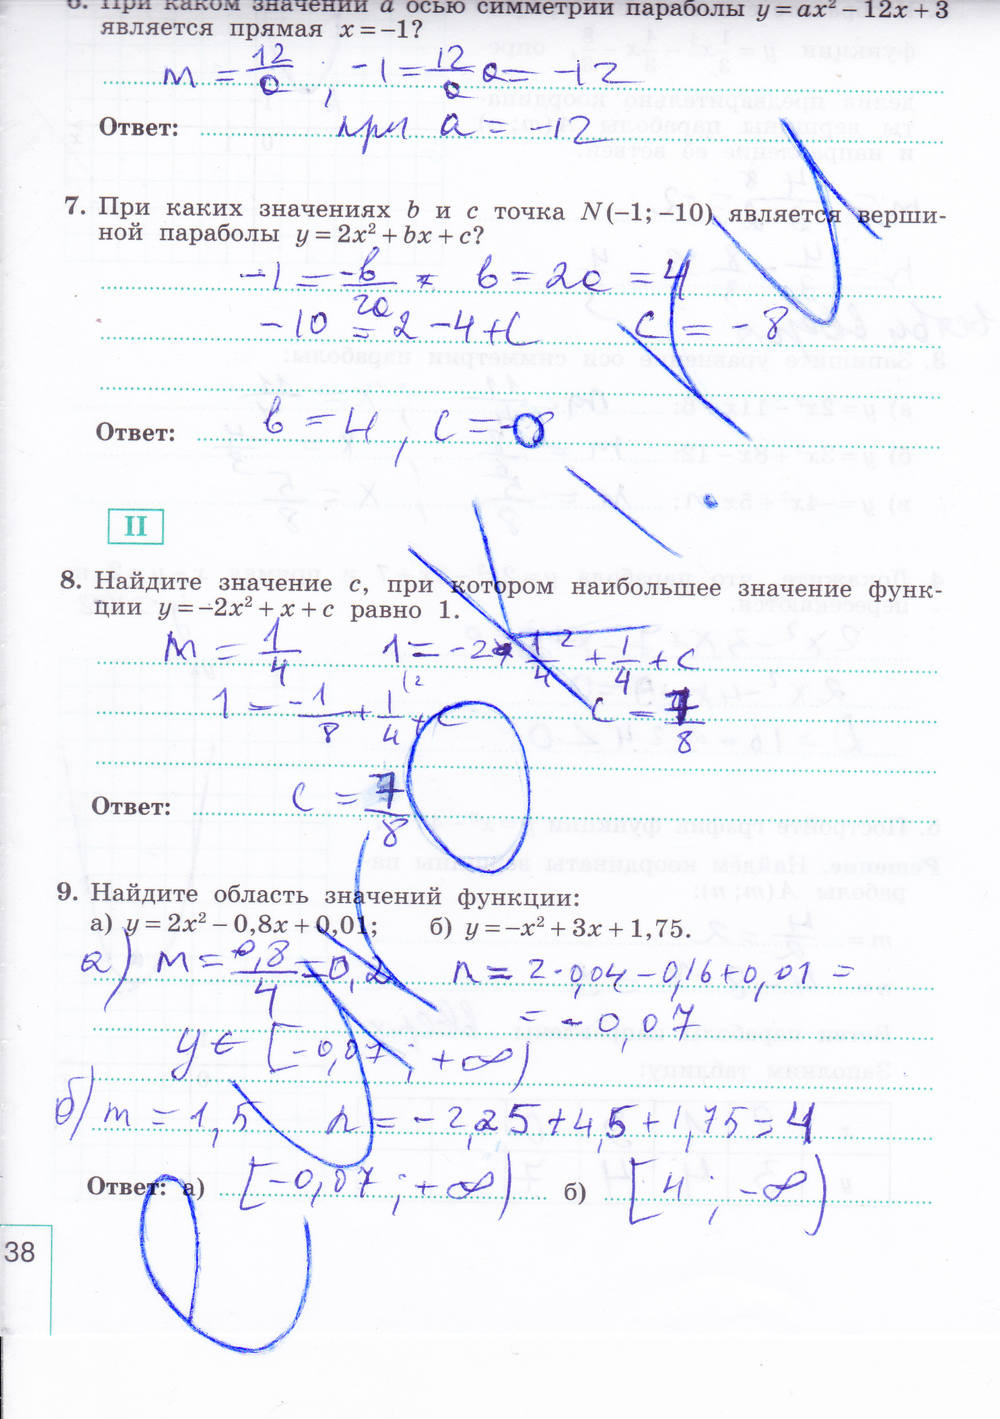 6. При каком значении a осью симметрии параболы y = ax² − 12x + 3
является прямая x = −1?
m = 12/a ; −1 = 12/a a = −12
Ответ: при a = −12
7. При каких значениях b и c точка N(−1; −10) является верши-
ной параболы y = 2x² + bx + c?
−1 = −b/2a b = 2a = 4
−10 = 2 − 4 + c c = −8
Ответ: b = 4, c = −8
II
8. Найдите значение c, при котором наибольшее значение функ-
ции y = −2x² + x + c равно 1.
m = 1/4 1 = −2 · 1/4² + 1/4 + c
1 = −1/8 + 1/4 + c c = 7/8
Ответ: c = 7/8
9. Найдите область значений функции:
а) y = 2x² − 0,8x + 0,01; б) y = −x² + 3x + 1,75.
а) m = 0,8/4 = 0,2 n = 2 · 0,04 − 0,16 + 0,01 =
= −0,07
y ∈ [−0,07 ; +∞)
б) m = 1,5 n = −2,25 + 4,5 + 1,75 = 4
Ответ: а) [−0,07 ; +∞) б) [4 ; −∞)
38